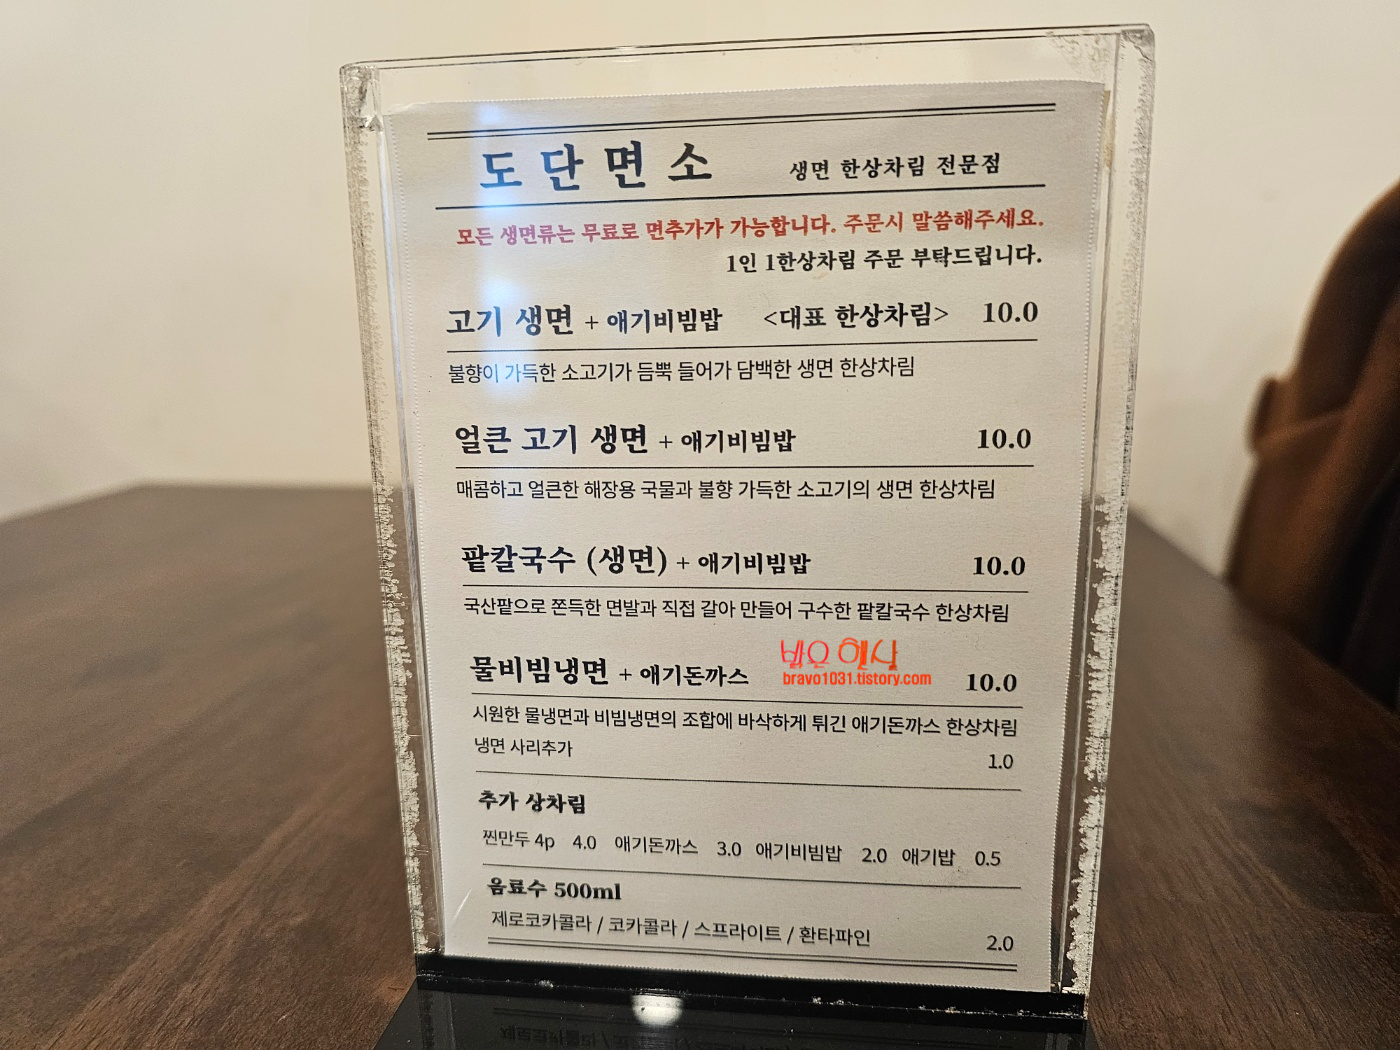 도단면소 생면 한상차림 전문점
모든 생면류는 무료로 면추가가 가능합니다. 주문시 말씀해주세요.
1인 1한상차림 주문 부탁드립니다.
고기 생면 + 애기비빔밥 <대표 한상차림> 10.0
불향이 가득한 소고기가 듬뿍 들어가 담백한 생면 한상차림
얼큰 고기 생면 + 애기비빔밥 10.0
매콤하고 얼큰한 해장용 국물과 불향 가득한 소고기의 생면 한상차림
팥칼국수 (생면) + 애기비빔밥 10.0
국산팥으로 쫀득한 면발과 직접 갈아 만들어 구수한 팥칼국수 한상차림
bravo1031.tistory.com
물비빔냉면 + 애기돈까스 10.0
시원한 물냉면과 비빔냉면의 조합에 바삭하게 튀긴 애기돈까스 한상차림
냉면 사리추가 1.0
추가 상차림
찐만두 4p 4.0 애기돈까스 3.0 애기비빔밥 2.0 애기밥 0.5
음료수 500ml
제로코카콜라 / 코카콜라 / 스프라이트 / 환타파인 2.0